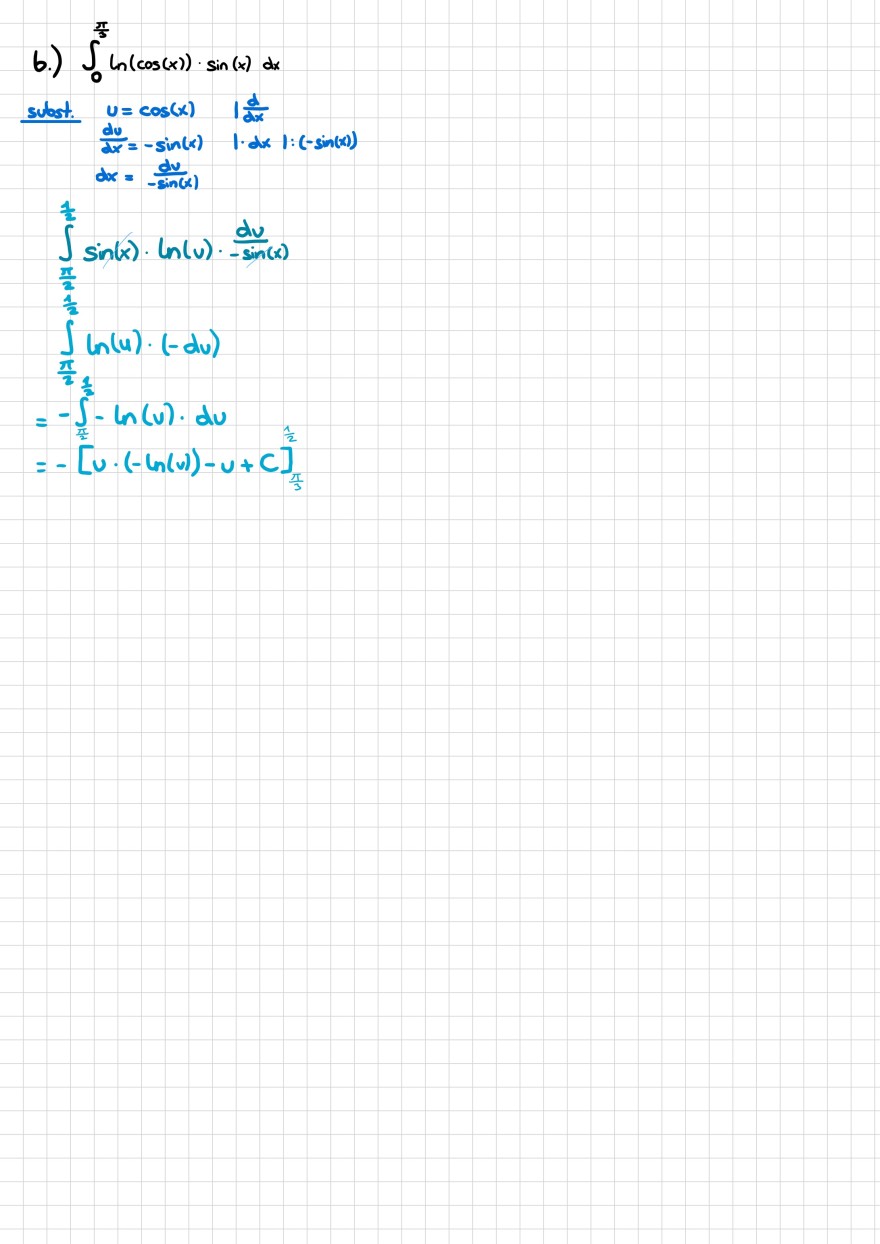 6.) ∫₀^(π/3) ln(cos(x)) · sin(x) dx
subst. u = cos(x) | d/dx
du/dx = -sin(x) |· dx |: (-sin(x))
dx = du/-sin(x)
∫_(π/2)^(1/2) sin(x) · ln(u) · du/-sin(x)
∫_(π/2)^(1/2) ln(u) · (-du)
= - ∫_(π/2)^(1/2) - ln(u) · du
= - [u · (-ln(u)) - u + C]_(π/3)^(1/2)